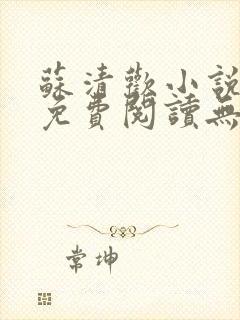 蘇清歡小說
免費閱讀無
常坤